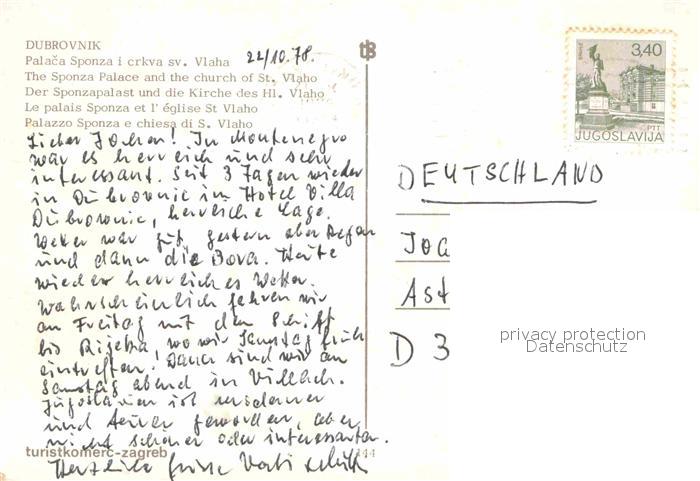 DUBROVNIK
Palača Sponza i crkva sv. Vlaha 22/10.78.
The Sponza Palace and the church of St. Vlaho
Der Sponzapalast und die Kirche des Hl. Vlaho
Le palais Sponza et l' église St Vlaho
Palazzo Sponza e chiesa di S. Vlaho
Lieber Jochen! In Montenegro
war es herrlich und sehr
interessant. Seit 3 Tagen wieder
in Dubrovnic im Hotel Villa
Dubrovnic, herrliche Lage.
Wetter war gut, gestern aber Regen
und dann die Bora. Heute
wieder herrliches Wetter.
Wahrscheinlich fahren wir
am Freitag mit dem Schiff
bis Rijeka, wo wir Samstag früh
eintreffen. Dann sind wir am
Samstag abend in Villach.
Jugoslavien ist
und teurer geworden, aber
nicht schöner oder interessanter.
Herzliche Grüsse Vati
turistkomerc-zagreb 144
3,40
PTT
JUGOSLAVIJA
DEUTSCHLAND
Joa
Ast
D 3
privacy protection
Datenschutz